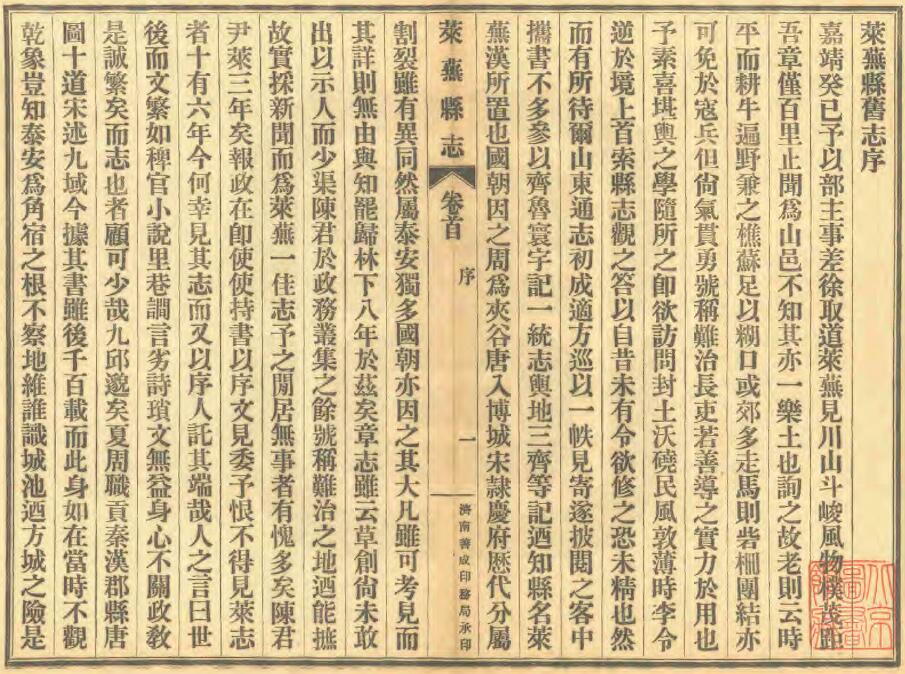 萊蕪縣舊志序
嘉靖癸巳予以部主事差徐取道萊蕪見川山斗峻風物樸茂距
吾章僅百里止聞爲山邑不知其亦一樂土也詢之故老則云時
平而耕牛遍野兼之樵蘇足以糊口或郊多走馬則砦柵團結亦
可免於寇兵但尙氣貫勇號稱難治長吏若善導之實力於用也
予素喜堪輿之學隨所之卽欲訪問封土沃磽民風敦薄時李令
逆於境上首索縣志觀之答以自昔未有令欲修之恐未精也然
而有所待爾山東通志初成適方巡以一帙見寄遂披閱之客中
攜書不多參以齊魯寰宇記一統志輿地三齊等記迺知縣名萊
蕪漢所置也國朝因之周爲夾谷唐入博城宋隸慶府歷代分屬
萊蕪縣志 卷首 序 一 濟南善成印務局承印
割裂雖有異同然屬泰安獨多國朝亦因之其大凡雖可考見而
其詳則無由與知罷歸林下八年於茲矣章志雖云草創尙未敢
出以示人而少渠陳君於政務叢集之餘號稱難治之地迺能摭
故實採新聞而爲萊蕪一佳志予之閒居無事者有愧多矣陳君
尹萊三年矣報政在卽使使持書以序文見委予恨不得見萊志
者十有六年今何幸見其志而又以序人託其端哉人之言曰世
後而文繁如稗官小說里巷讕言劣詩瑣文無益身心不關政敎
是誠繁矣而志也者顧可少哉九邱邈矣夏周職貢秦漢郡縣唐
圖十道宋迹九域今據其書雖後千百載而此身如在當時不觀
乾象豈知泰安爲角宿之根不察地維誰識城池迺方城之險是